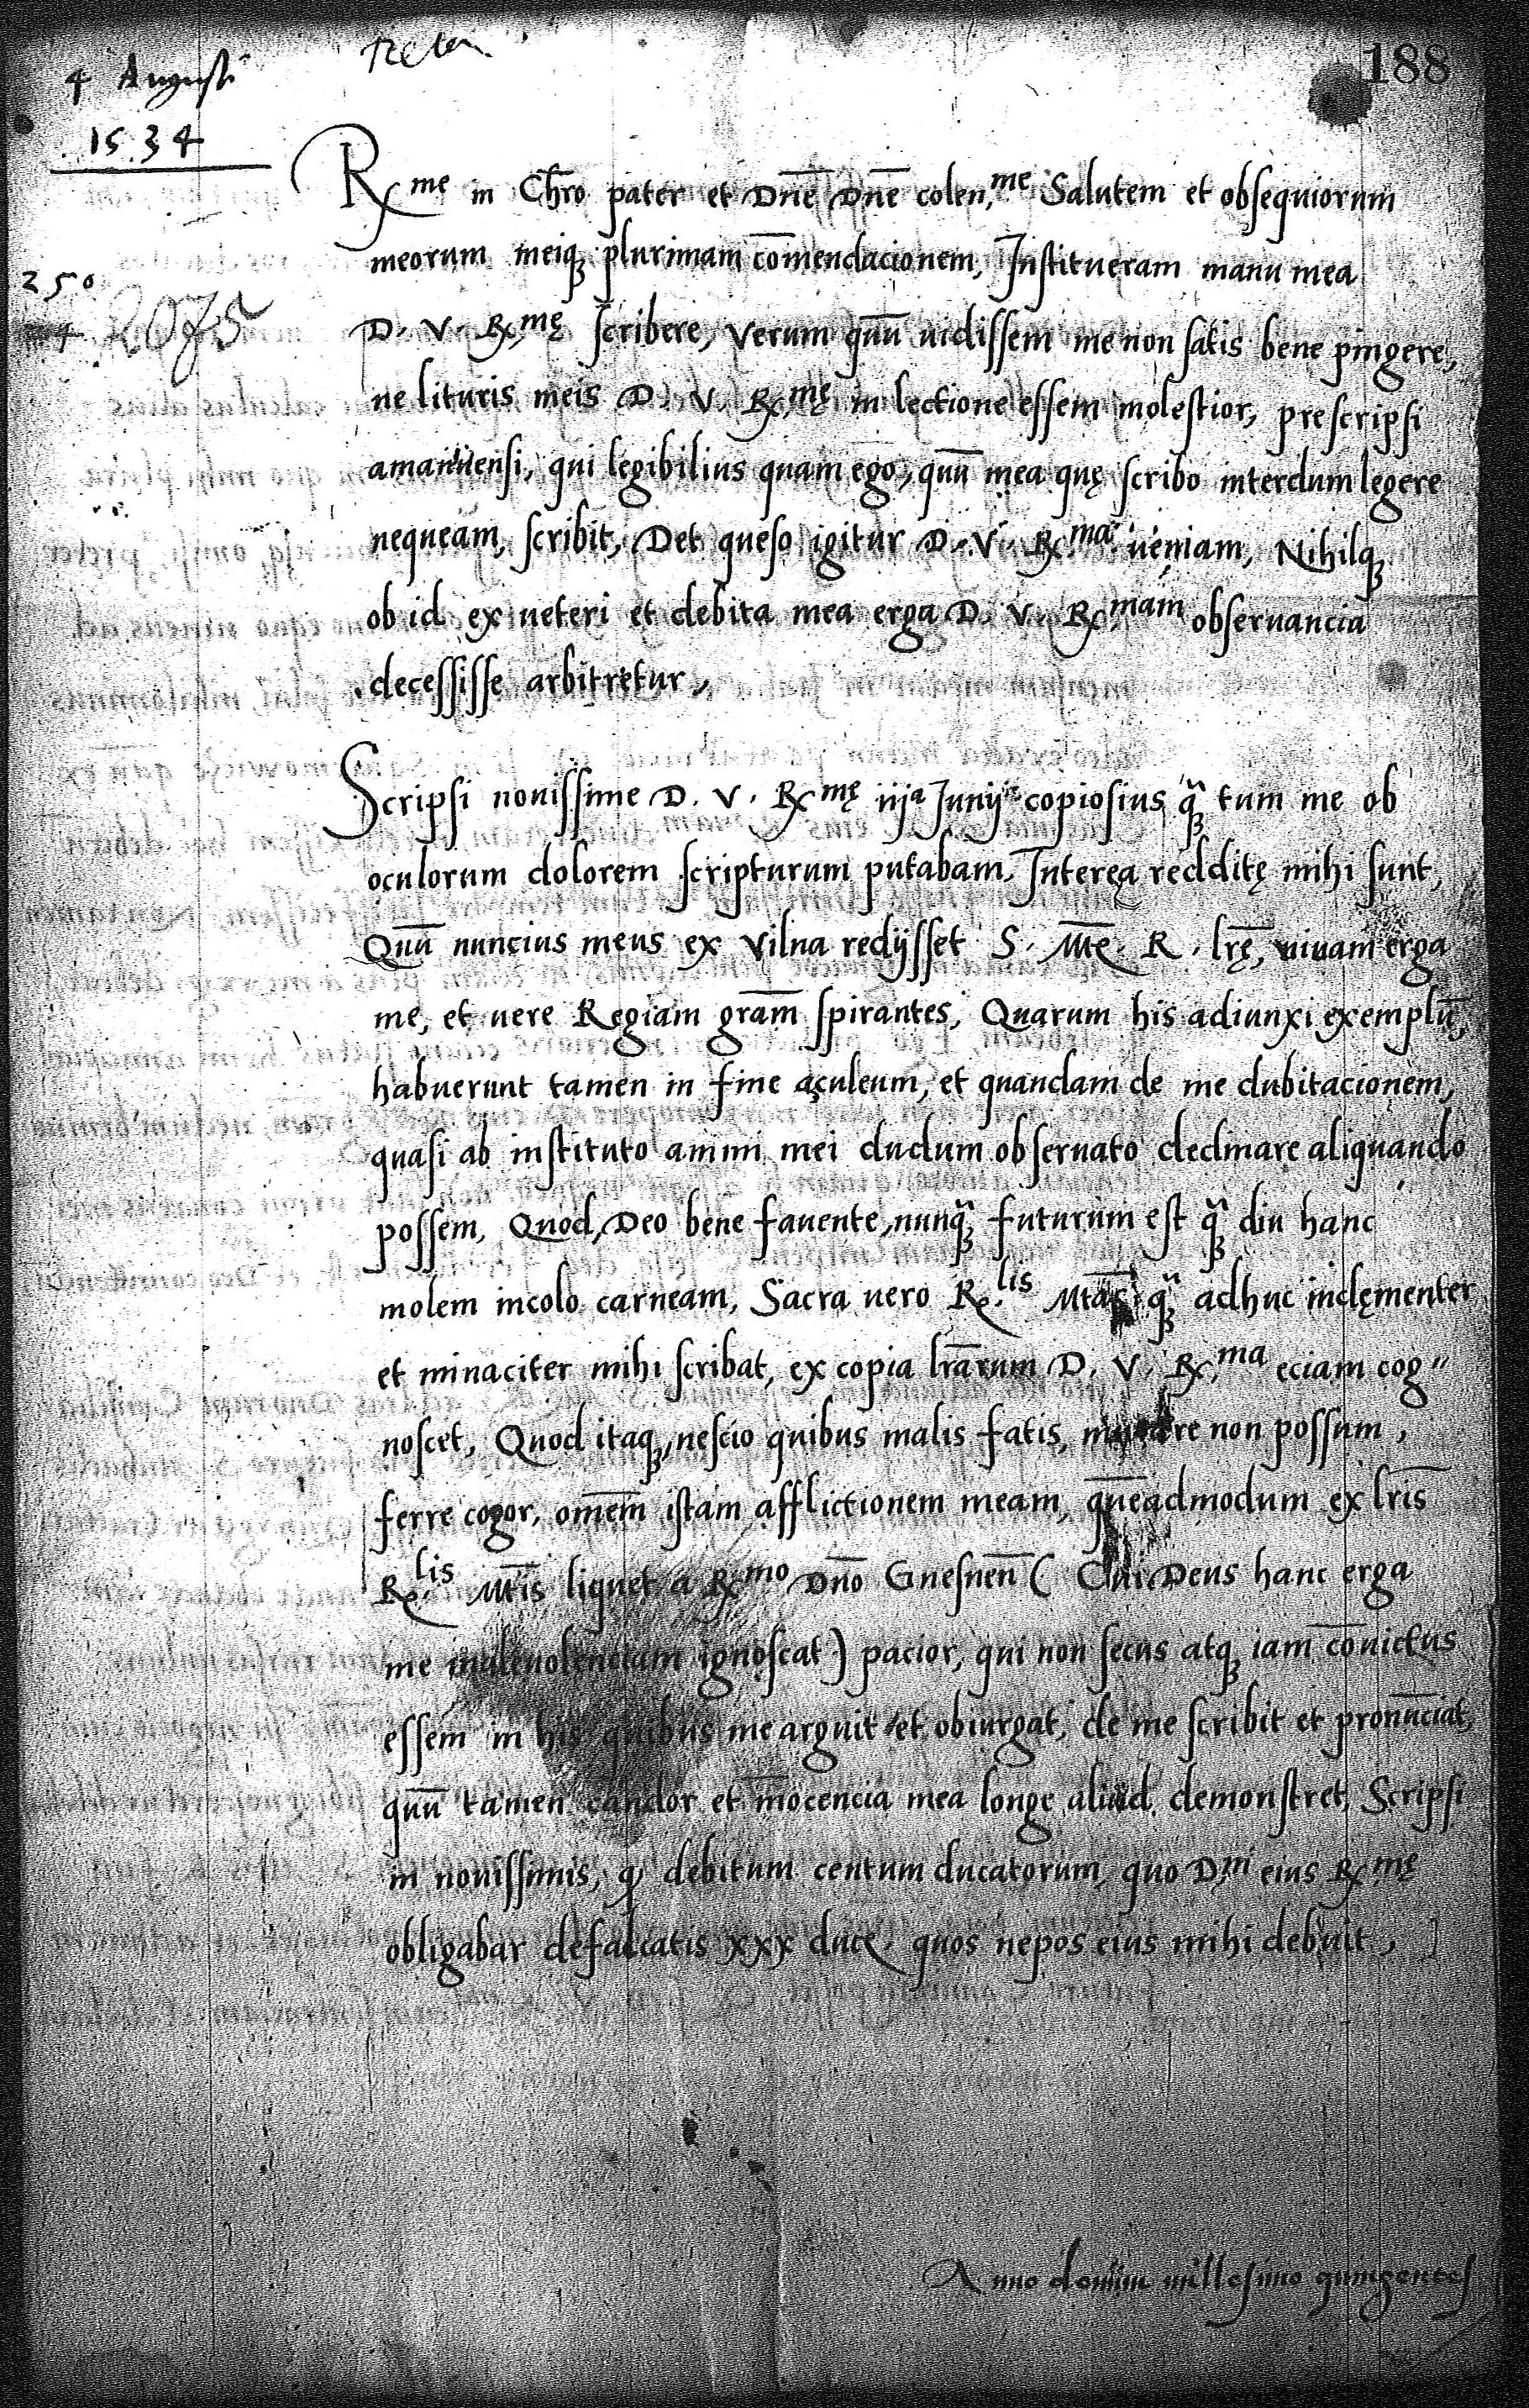 188
4 Augusti
1534
250
4
2075
Rx.me in Chro pater et Dne Dne colen.me Salutem et obsequiorum
meorum meiq; plurimam comendacionem, Institueram manu mea
D. V. Rx.mę scribere, verum quu uidissem me non satis bene pingere,
ne lituris meis D. V. Rx.mę in lectione essem molestior, prescripsi
amanuensi, qui legibilius quam ego, quu mea quę scribo interdum legere
nequeam, scribit, Det queso igitur D. V. Rx.ma ueniam, Nihilq;
ob id ex ueteri et debita mea erga D. V. Rx.mam obseruancia
decessisse arbitretur,
Scripsi nouissime D. V. Rx.mę iija Junij copiosius q̃ȝ tum me ob
oculorum dolorem scripturum putabam. Interea redditę mihi sunt,
Quū nuncius meus ex Vilna redijsset S. Mte. R. lrę, uiuam erga
me, et uere Regiam gram spirantes, Quarum his adiunxi exemplū,
habuerunt tamen in fine aculeum, et quandam de me dubitacionem,
quasi ab instituto animi mei dudum obseruato declinare aliquando
possem, Quod, Deo bene fauente, nunq̃ȝ futurum est q̃ȝ diu hanc
molem incolo carneam, Sacra uero R.lis Mtas q̃ȝ adhuc inclęmenter
et minaciter mihi scribat, ex copia lrarum D. V. Rx.ma eciam cog"
noscet, Quod itaq;, nescio quibus malis fatis, mutare non possum,
ferre cogor, omem istam afflictionem meam, queadmodum ex lris
R.lis Mtis liquet a Rx.mo Dno Gnesnen ( Cui Deus hanc erga
me maleuolenciam ignoscat ) pacior, qui non secus atq; iam conuictus
essem in his quibus me arguit et obiurgat, de me scribit et pronunciat,
quū tamen candor et inocencia mea longe aliud demonstret, Scripsi
in nouissimis, q debitum centum ducatorum, quo D.ni eius Rx.mę
obligabar defalcatis xxx duc. quos nepos eius mihi debuit,
Anno domini millesimo quingentes